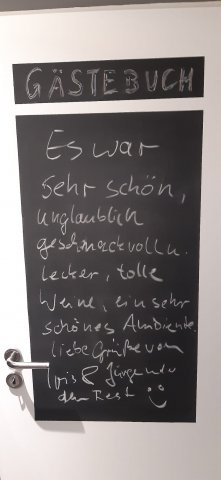 GÄSTEBUCH
Es war
sehr schön,
unglaublich
geschmackvoll u.
lecker, tolle
Weine, ein sehr
schönes Ambiente.
liebe Grüße von
& Jürgen u.
der Rest